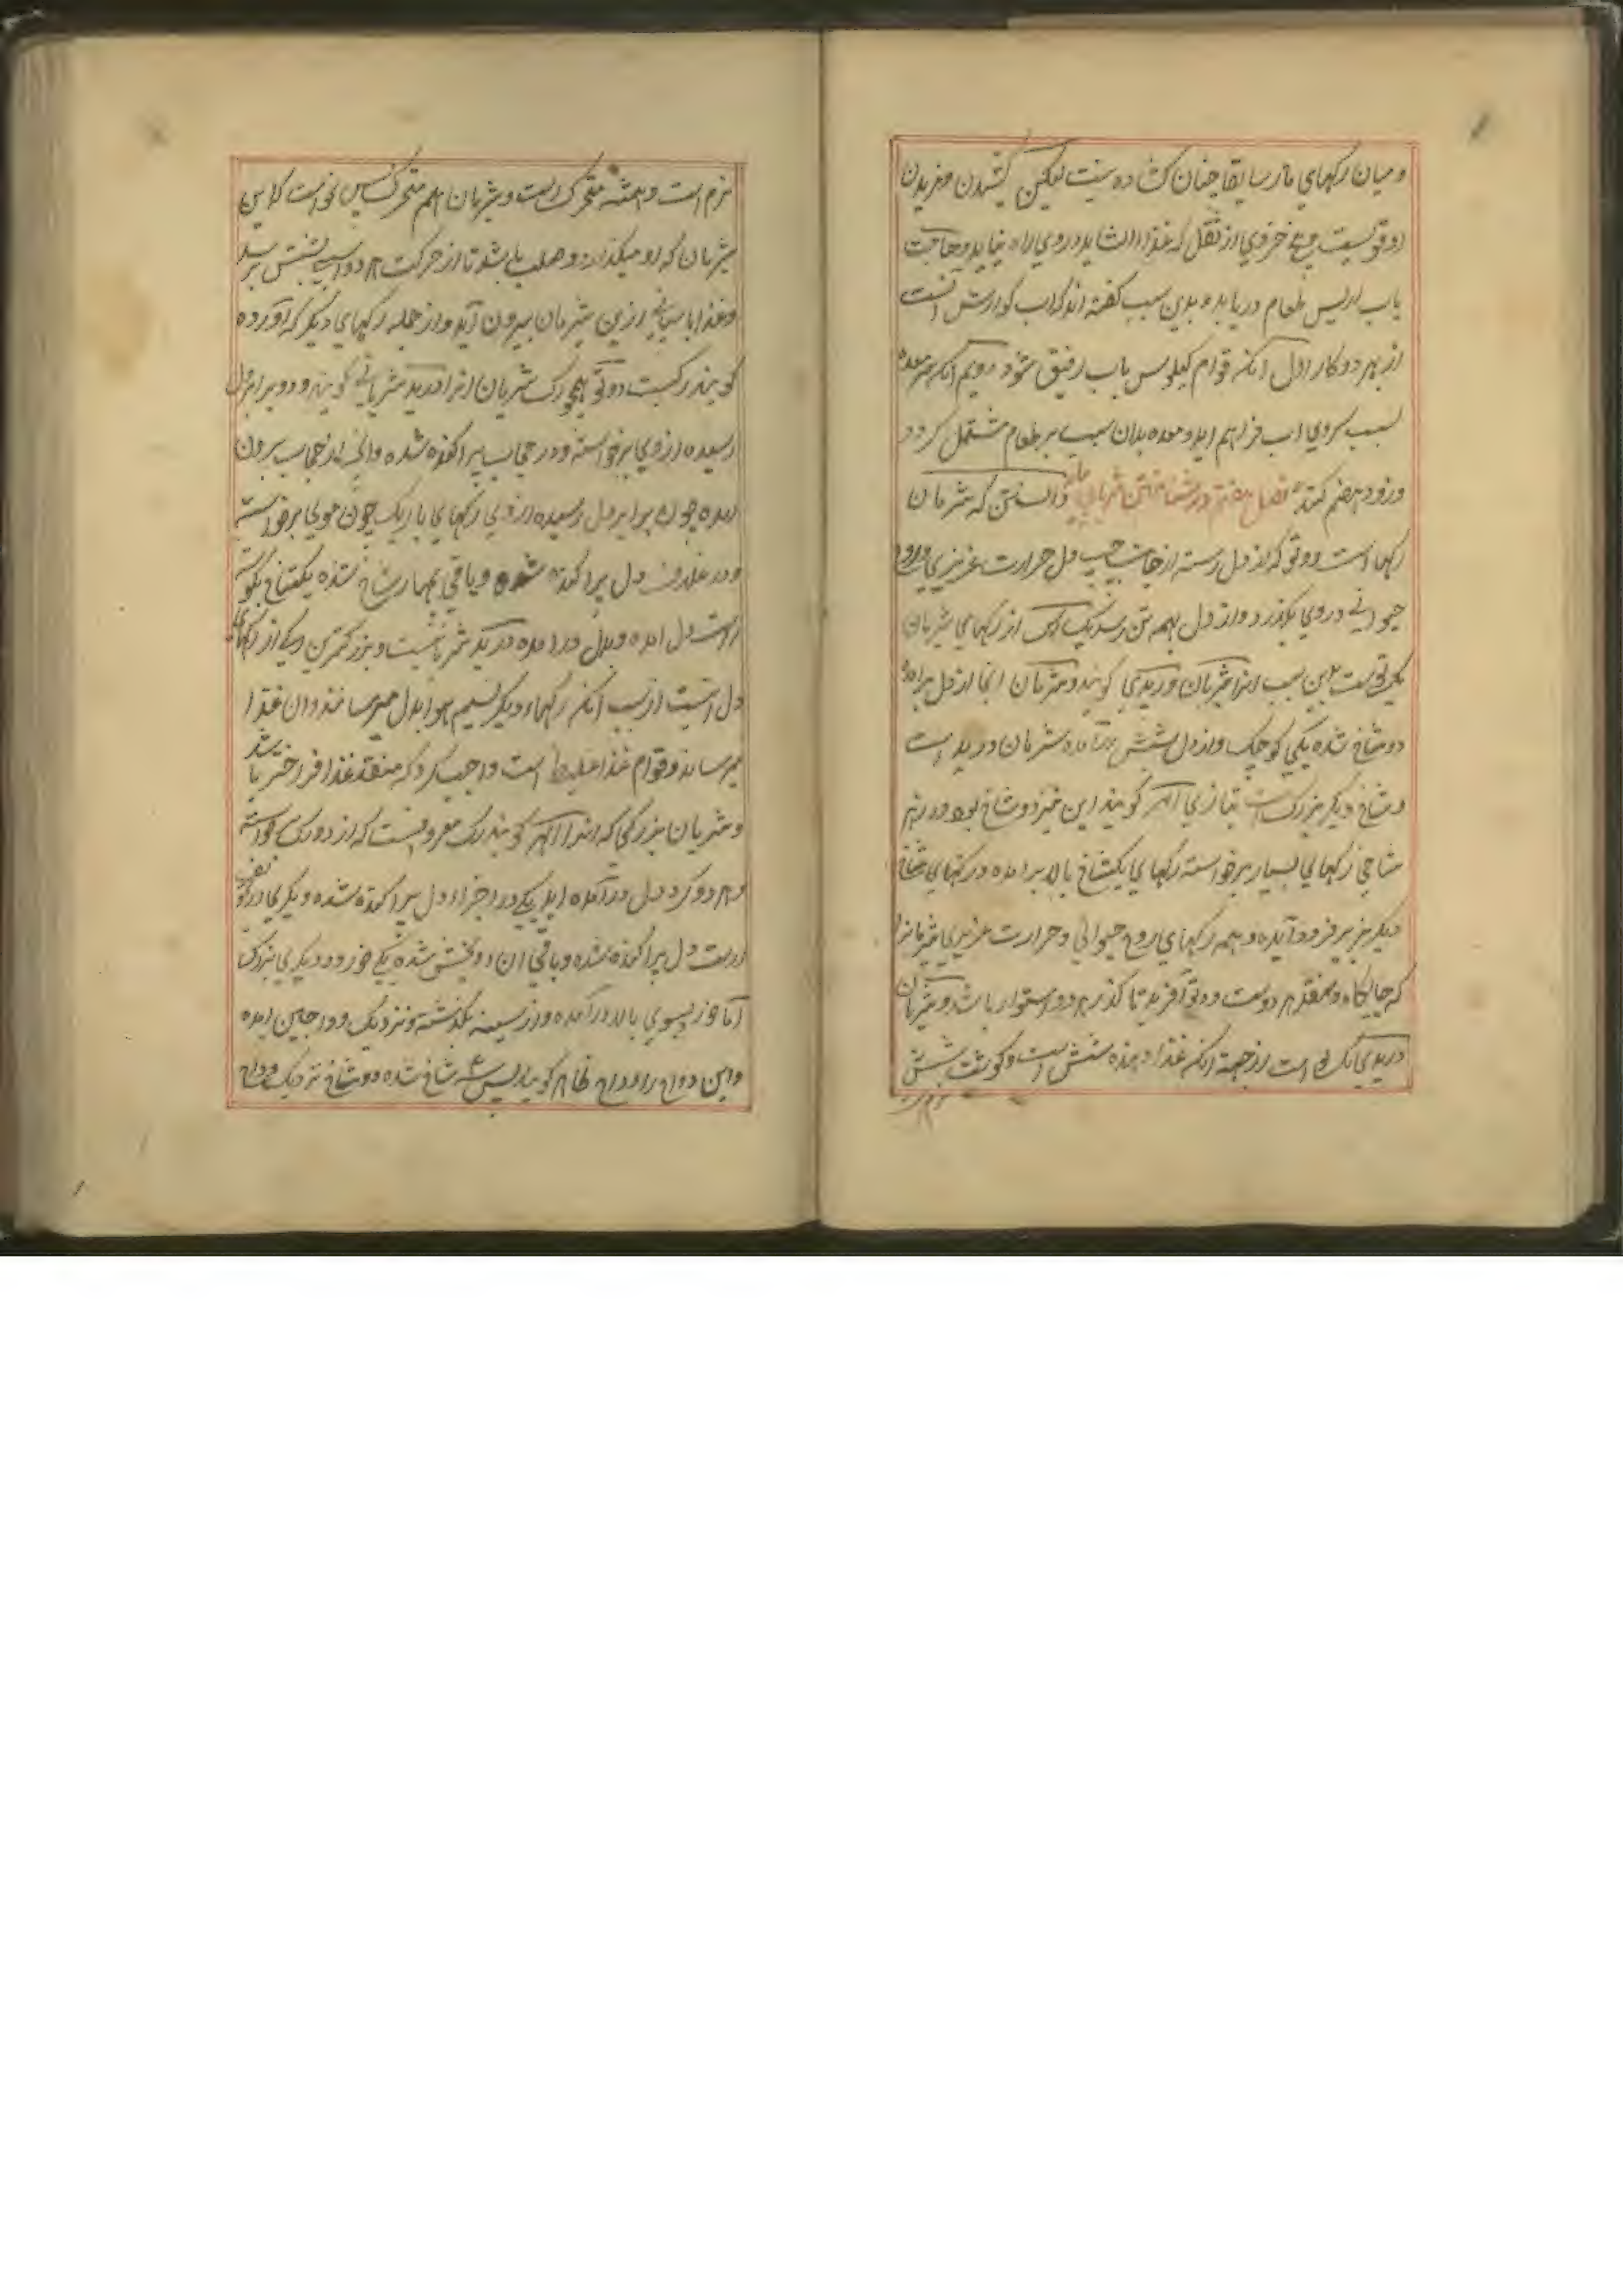 و میان رکهای ماساریقا چنان کشاده نیست لیکن کشیدن و مزیدن
او قویست و هیچ جزوی از ثقل که غذا را نشاید در وی راه نیابد و حاجت
باب از پس طعام دریابد و بدین سبب کفته اند که آب کوارش آنست
از بهر دو کار اول آنکه قوام کیلوس باب رقیق شود دویم آنکه قعر معده
بسبب سردی اب فراهم اید و معده بدان سبب بر طعام مشتمل کردد
و زود هضم کند فصل هفتم در شناختن شریانها دانستن که شریان
رکها است دوتو که از دل رسته از جانب چپ دل حرارت غریزی و روح
حیوانی در وی بکذرد و از دل بهمه تن رسد یک از رکهای شریان
یکتوست بدین سبب انرا شریان وریدی کویند و شریان انجا از دل برامده
دو شاخ شده یکی کوچک و از دل بشش شریان وریدیست
و شاخ دیکر بزرکست بتازی ابهر کویند این نیز دو شاخ بود و در هر
شاخی رکهای بسیار برخواسته رکهای یکشاخ بالا برامده و رکهای شاخ
دیکر بزیر فرود آیده و همه رکهای روح حیوانی و حرارت غریزی شریانرا
که جایکاه و منفذ هر دوست دوتو آفرید تا کذر هر دو استوار باشد و شریان
وریدی یک تو است از جهة آنکه غذا دهنده شش است و کوشت شش
نرم است
نرم است و همیشه متحرک است و شریان هم متحرک پس نخواست که این
شریان که او میکذارد و صلب باشد تا از حرکت هر دو آسیبی بشش برسد
و غذا باسانی ازین شریان بیرون آید و از جمله رکهای دیکر که آورده
کویند رکیست دوتو همچو رک شریان انرا ورید شریانی کویند و در برابر دل
رسیده از وی برخواسته و در حجاب پراکنده شده و آنچه از حجاب برون
امده چون برابر دل رسیده از وی رکهای باریک چون موی برخواسته
و در غلاف دل پراکنده شده و باقی بچهار شاخ شده یکشاخ بکوش
راست دل امده و بدل در امده ورید شریانیست و بزرکترین رکی از رکهای
دل است از سبب آنکه رکهاء دیکر نسیم هوا بدل میرسانند و ان غذا
میرساند و قوام غذا غلیظ است واجب کرد که منفذ غذا فراختر باشد
و شریان بزرکی که انرا ابهر کویند رک معروفست که از دو رک خواسته
و هر دو کرد دل در آمده اید یکی در اجزاء دل پراکنده شده و یکری در تجویف
راست دل پراکنده شده و باقی ان دو بخش شده یکی خورد و دیکری بزرک
آما خورد بسوی بالا در آمده و از سینه بکذشته و نزدیک ودجین امده
و این دو داج را وداج ظاهر کویند پس سه شاخ شده دو شاخ نزدیک وداج